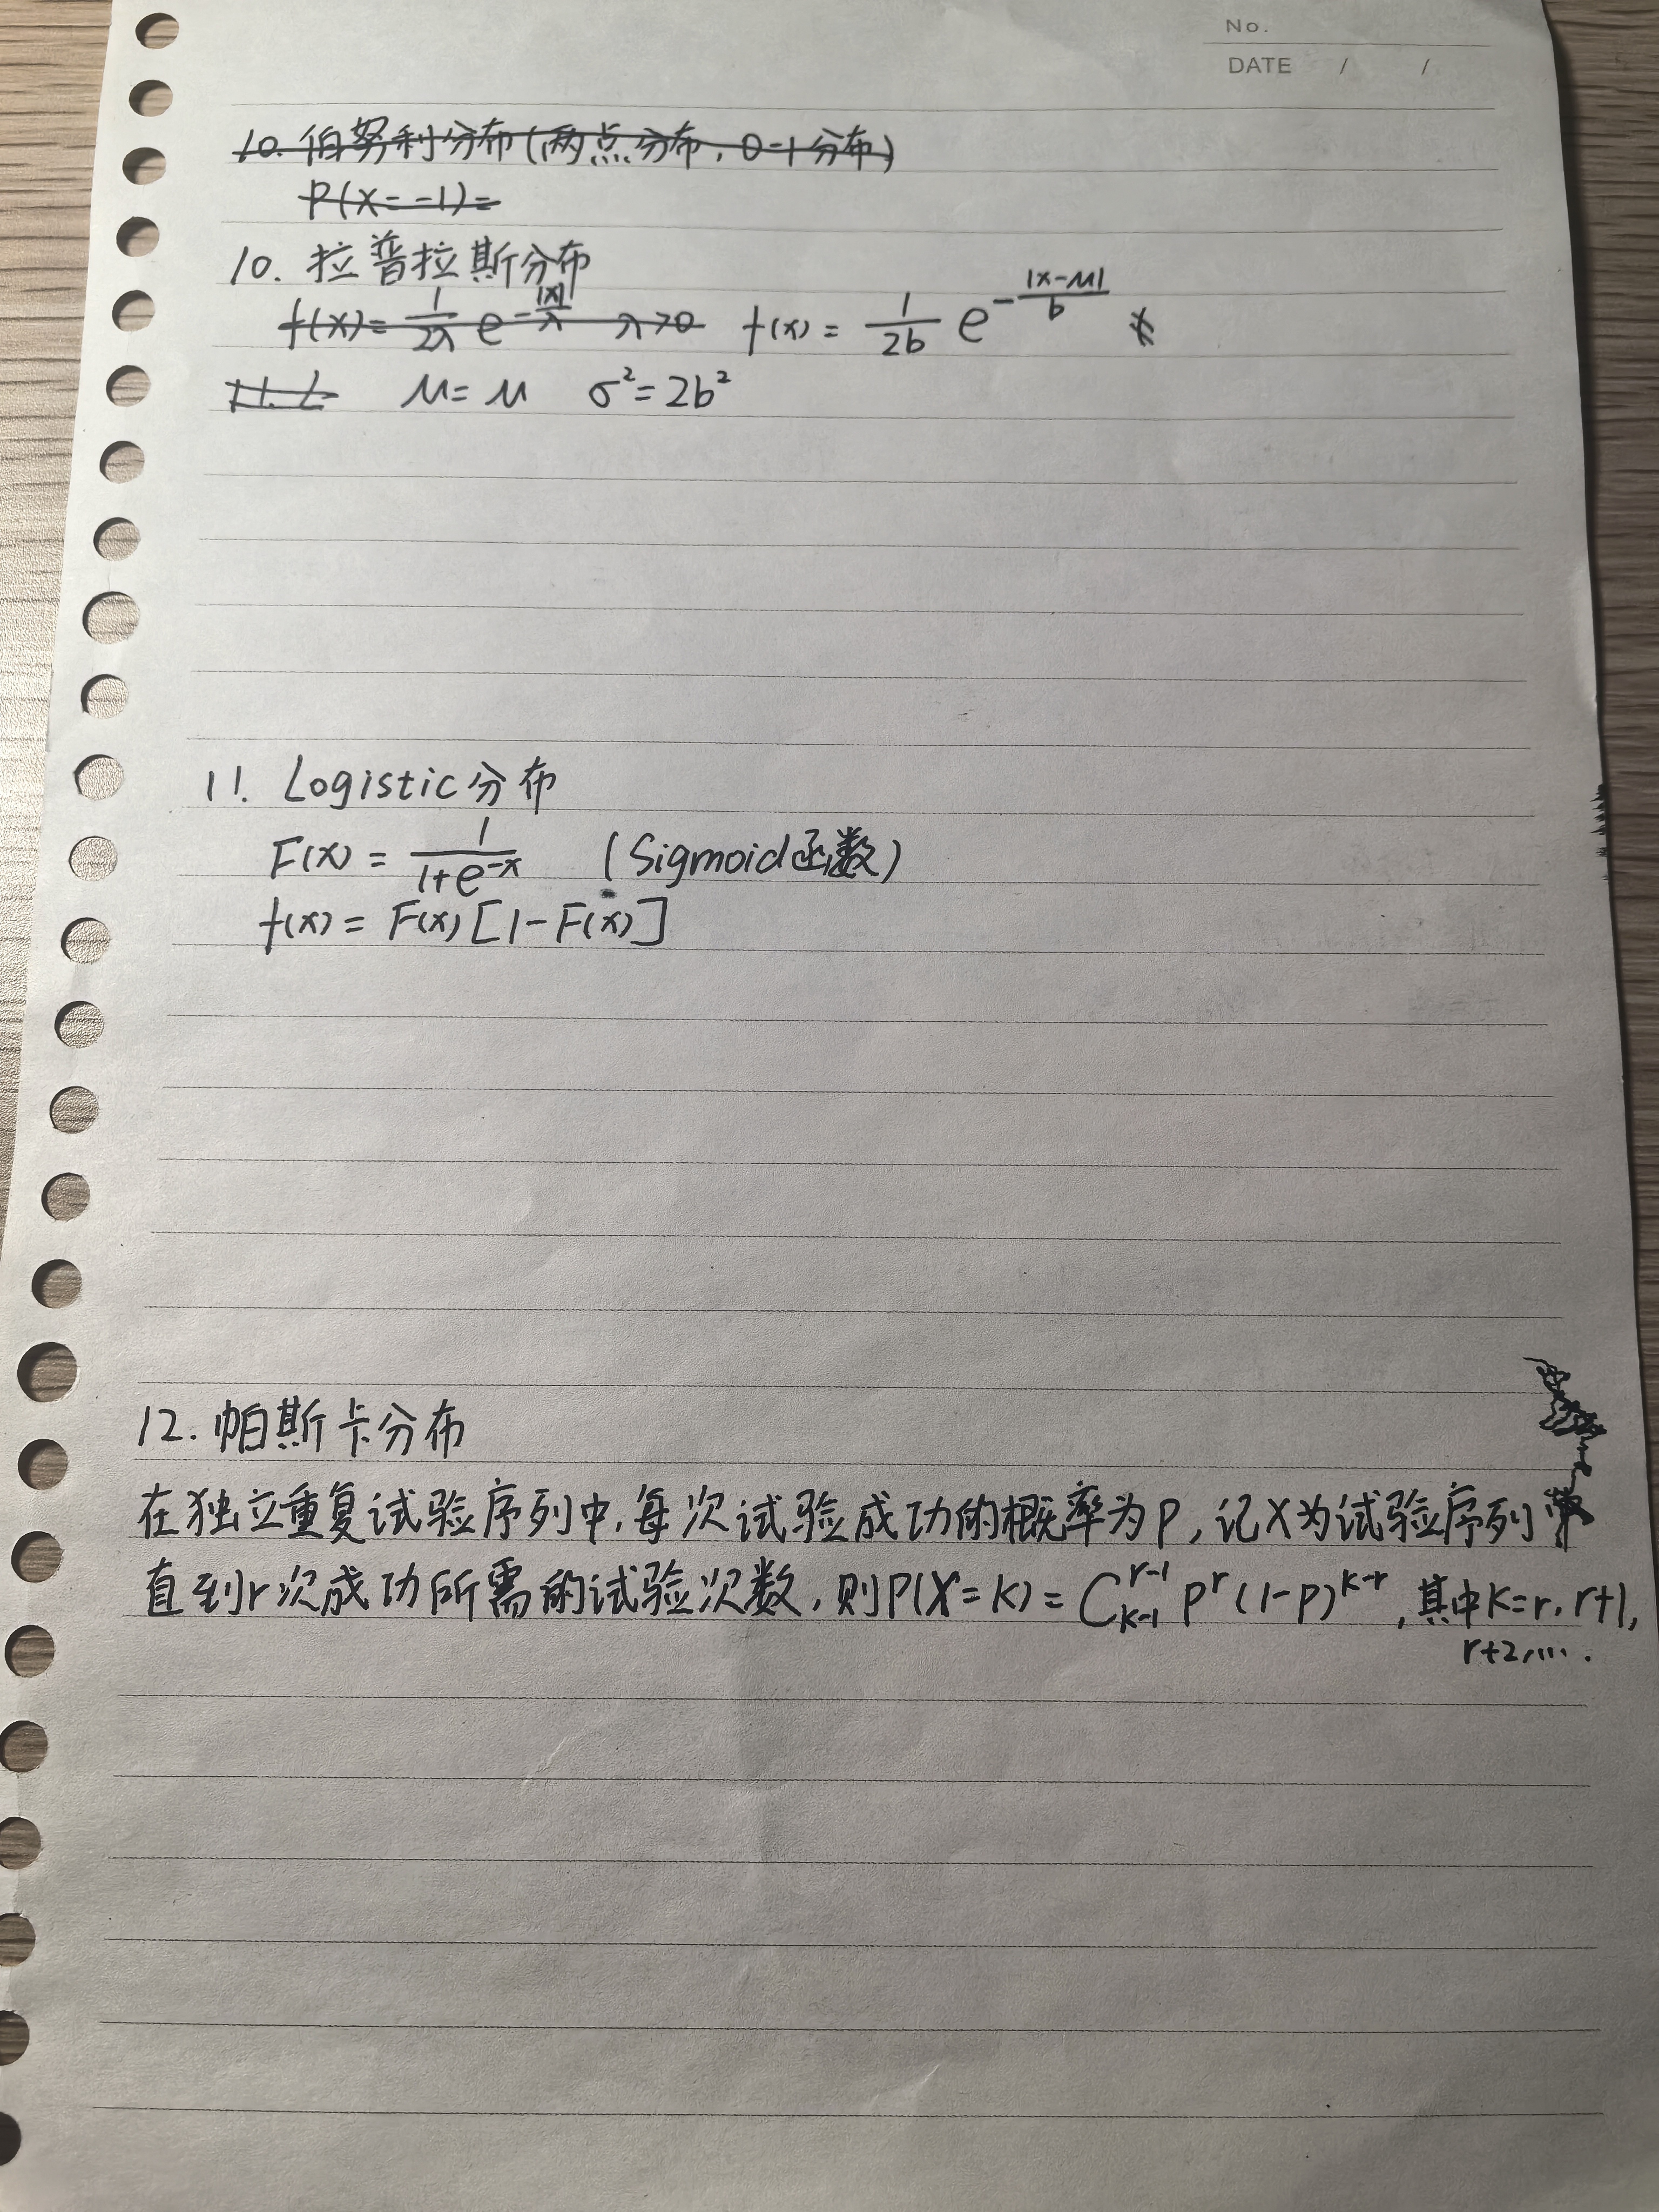 No.
DATE / /
10. 伯努利分布(两点分布，0-1分布)
P(X=-1)=
10. 拉普拉斯分布
f(x)= \frac{1}{2λ} e^{-\frac{|x|}{λ}} λ>0 f(x)= \frac{1}{2b} e^{-\frac{|x-μ|}{b}}
μ=μ σ²=2b²
11. Logistic分布
F(x)= \frac{1}{1+e^{-x}} (Sigmoid函数)
f(x)= F(x)[1-F(x)]
12. 帕斯卡分布
在独立重复试验序列中，每次试验成功的概率为p，记X为试验序列
直到r次成功所需的试验次数，则P(X=k)= C_{k-1}^{r-1} p^r (1-p)^{k-r}，其中k=r, r+1,
r+2,….